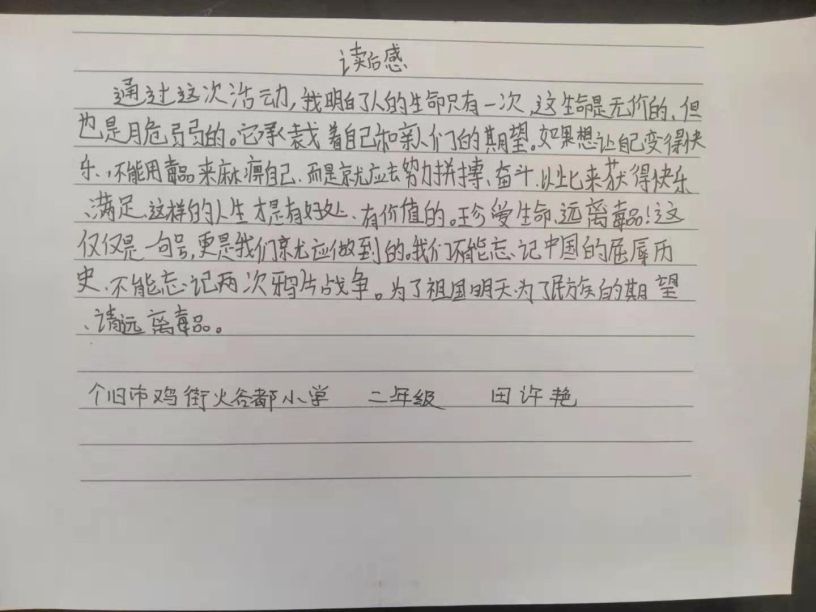 读后感
通过这次活动,我明白了人的生命只有一次,这生命是无价的、但
也是脆弱的。它承裁着自己和亲人们的期望。如果想让自己变得快
乐、,不能用毒品来麻痹自己、而是就应去努力拼搏、奋斗、以此来获得快乐
、满足、这样的人生才是有好处、有价值的。珍爱生命、远离毒品!这
仅仅是一句号,更是我们就应做到的。我们不能忘记中国的屈辱历
史、不能忘记两次鸦片战争。为了祖国明天、为了民族的期望
、请远离毒品。
个旧市鸡街火谷都小学 二年级 田许艳